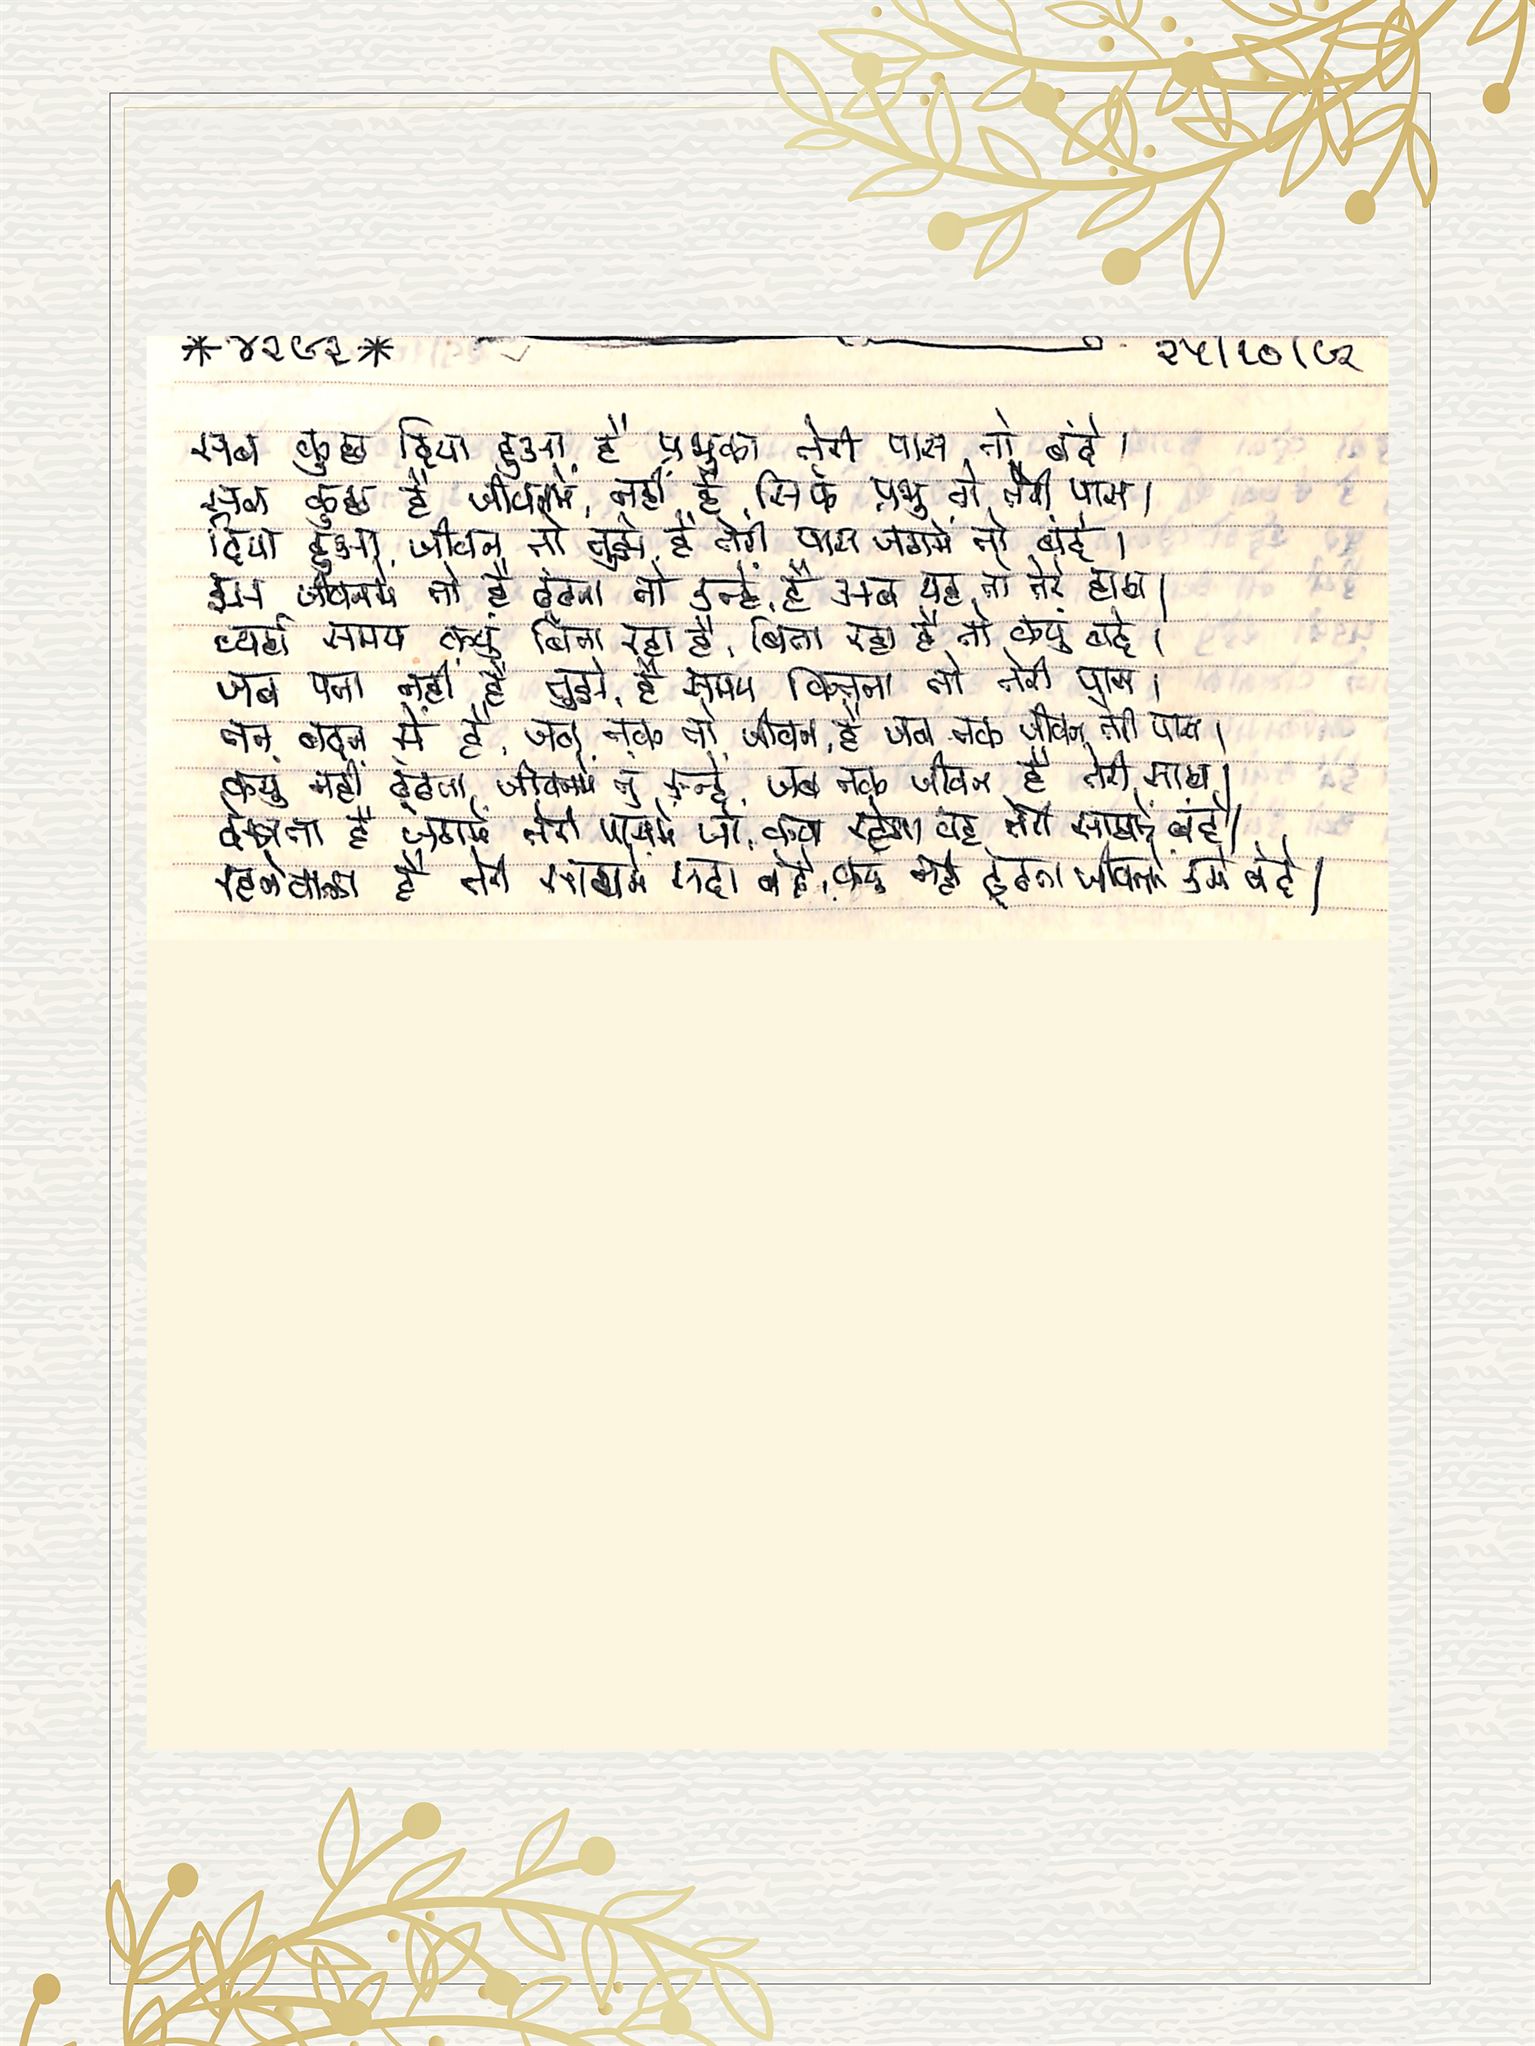 * ४२७२ * २५/१०/७२
सब कुछ दिया हुआ है प्रभुका तेरी पास तो बंदे।
सब कुछ है जीवनमें, नहीं है सिर्फ प्रभु तो तेरी पास।
दिया हुआ जीवन तो तुझे है तेरी पास जगमें तो बंदे।
इस जीवनमें तो है ढूंढना तो उन्हें, है अब यह तो तेरे हाथ।
व्यर्थ समय क्युं बिता रहा है, बिता रहा है तो क्युं बंदे।
जब पता नहीं है तुझे, है समय कितना तो तेरी पास।
तन बदन में है, जब तक तो जीवन, है जब तक जीवन तेरी पास।
क्युं नहीं ढूंढता जीवनमें तु उन्हें, जब तक जीवन है तेरी साथ।
देखता है जगमें तेरी पासमें जो, क्या रहेगा वह तेरी साथमें बंदे।
रहनेवाला है तेरी साथमें सदा बंदे, क्युं नहीं ढूंढता जीवनमें उसे बंदे।